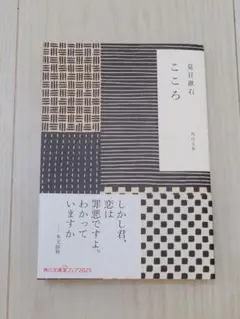 夏目漱石
こころ
角川文庫
しかし君、
恋は
罪悪ですよ。
わかって
いますか
──本文抜粋
角川文庫夏フェア2025